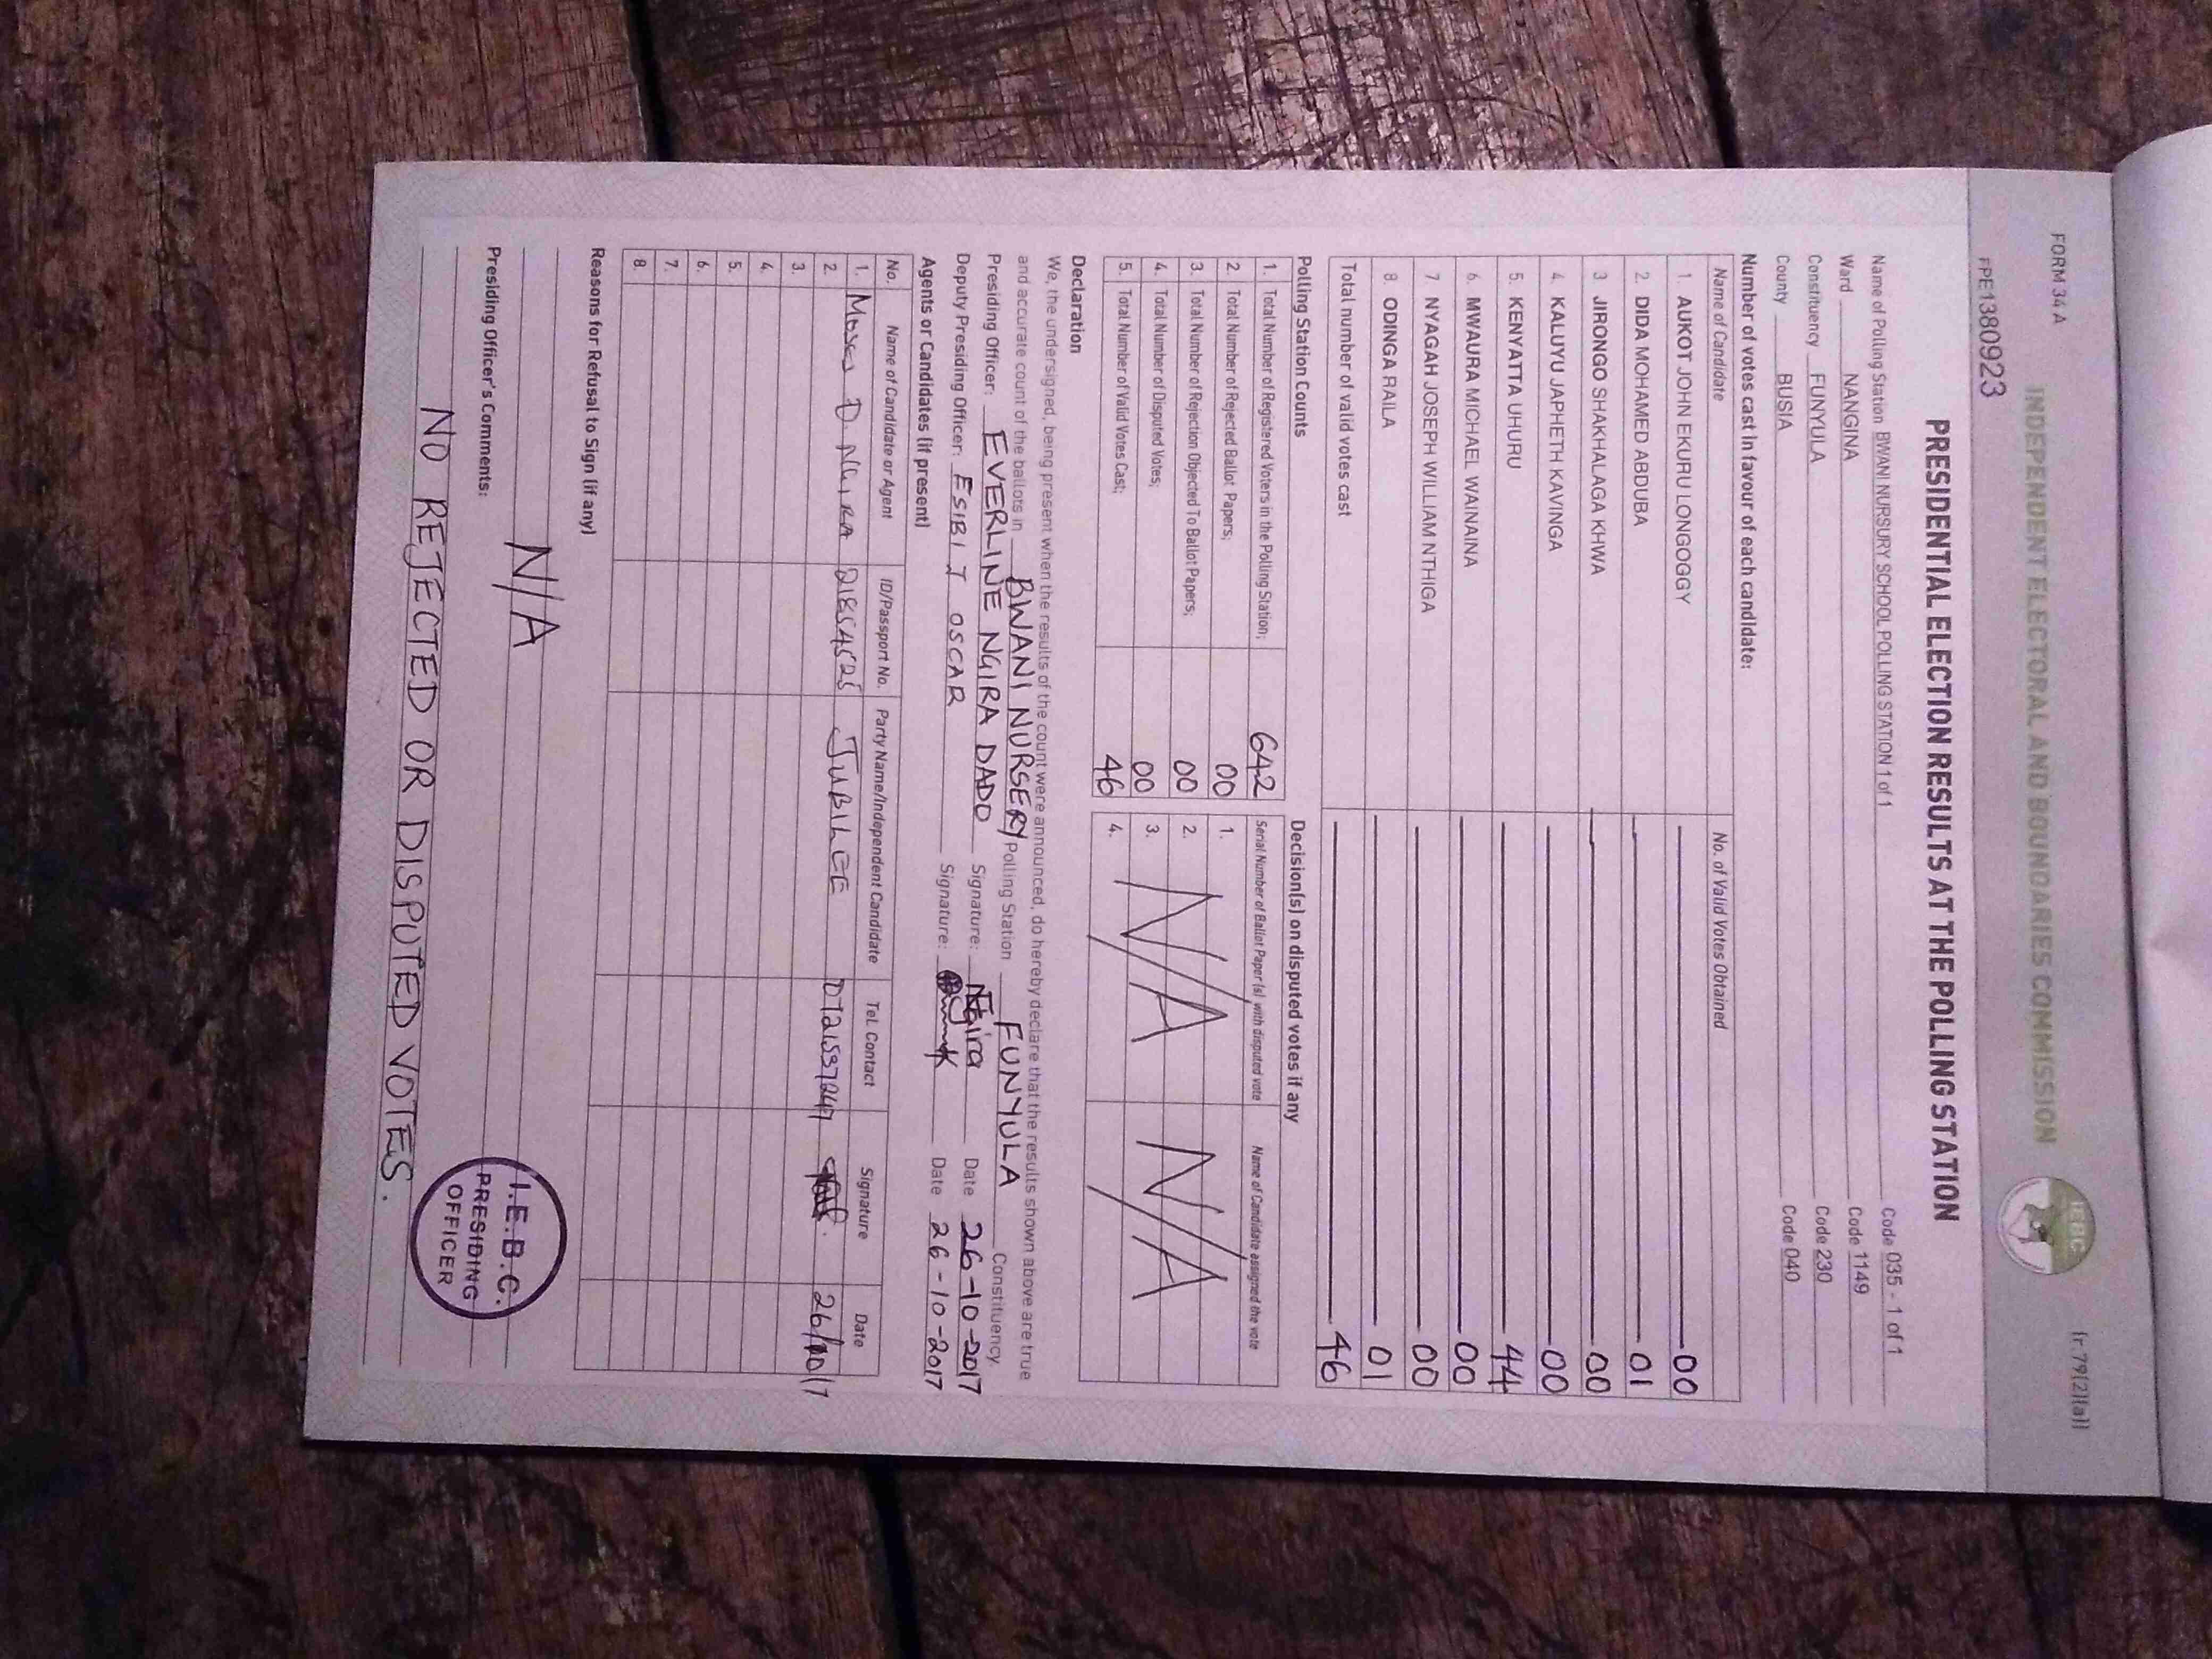 FORM 34 A
(r.79(2)(a))
INDEPENDENT ELECTORAL AND BOUNDARIES COMMISSION
IEBC
FPE1380923
PRESIDENTIAL ELECTION RESULTS AT THE POLLING STATION
Name of Polling Station BWANI NURSURY SCHOOL POLLING STATION 1 of 1 Code 035 - 1 of 1
Ward NANGINA Code 1149
Constituency FUNYULA Code 230
County BUSIA Code 040
Number of votes cast in favour of each candidate:
Name of Candidate No. of Valid Votes Obtained
1 AUKOT JOHN EKURU LONGOGGY 00
2. DIDA MOHAMED ABDUBA 01
3 JIRONGO SHAKHALAGA KHWA 00
4 KALUYU JAPHETH KAVINGA 00
5. KENYATTA UHURU 44
6 MWAURA MICHAEL WAINAINA 00
7 NYAGAH JOSEPH WILLIAM NTHIGA 00
8 ODINGA RAILA 01
Total number of valid votes cast 46
Polling Station Counts
1. Total Number of Registered Voters in the Polling Station; 642
2. Total Number of Rejected Ballot Papers; 00
3. Total Number of Rejection Objected To Ballot Papers; 00
4. Total Number of Disputed Votes; 00
5. Total Number of Valid Votes Cast; 46
Decision(s) on disputed votes if any
Serial Number of Ballot Paper (s) with disputed vote Name of Candidate assigned the vote
1.
2.
3.
4.
N/A N/A
Declaration
We, the undersigned, being present when the results of the count were announced, do hereby declare that the results shown above are true
and accurate count of the ballots in BWANI NURSERY Polling Station FUNYULA Constituency
Presiding Officer: EVERLINE NGIRA DADO Signature: Ngira Date 26-10-2017
Deputy Presiding Officer: ESIBI J OSCAR Signature: Date 26-10-2017
Agents or Candidates (if present)
No. Name of Candidate or Agent ID/Passport No. Party Name/Independent Candidate Tel. Contact Signature Date
1. Moses D. NGIRA JUBILEE 26/10/17
2.
3.
4.
5.
6.
7.
8.
Reasons for Refusal to Sign (if any)
N/A
Presiding Officer's Comments:
NO REJECTED OR DISPUTED VOTES.
I.E.B.C.
PRESIDING
OFFICER